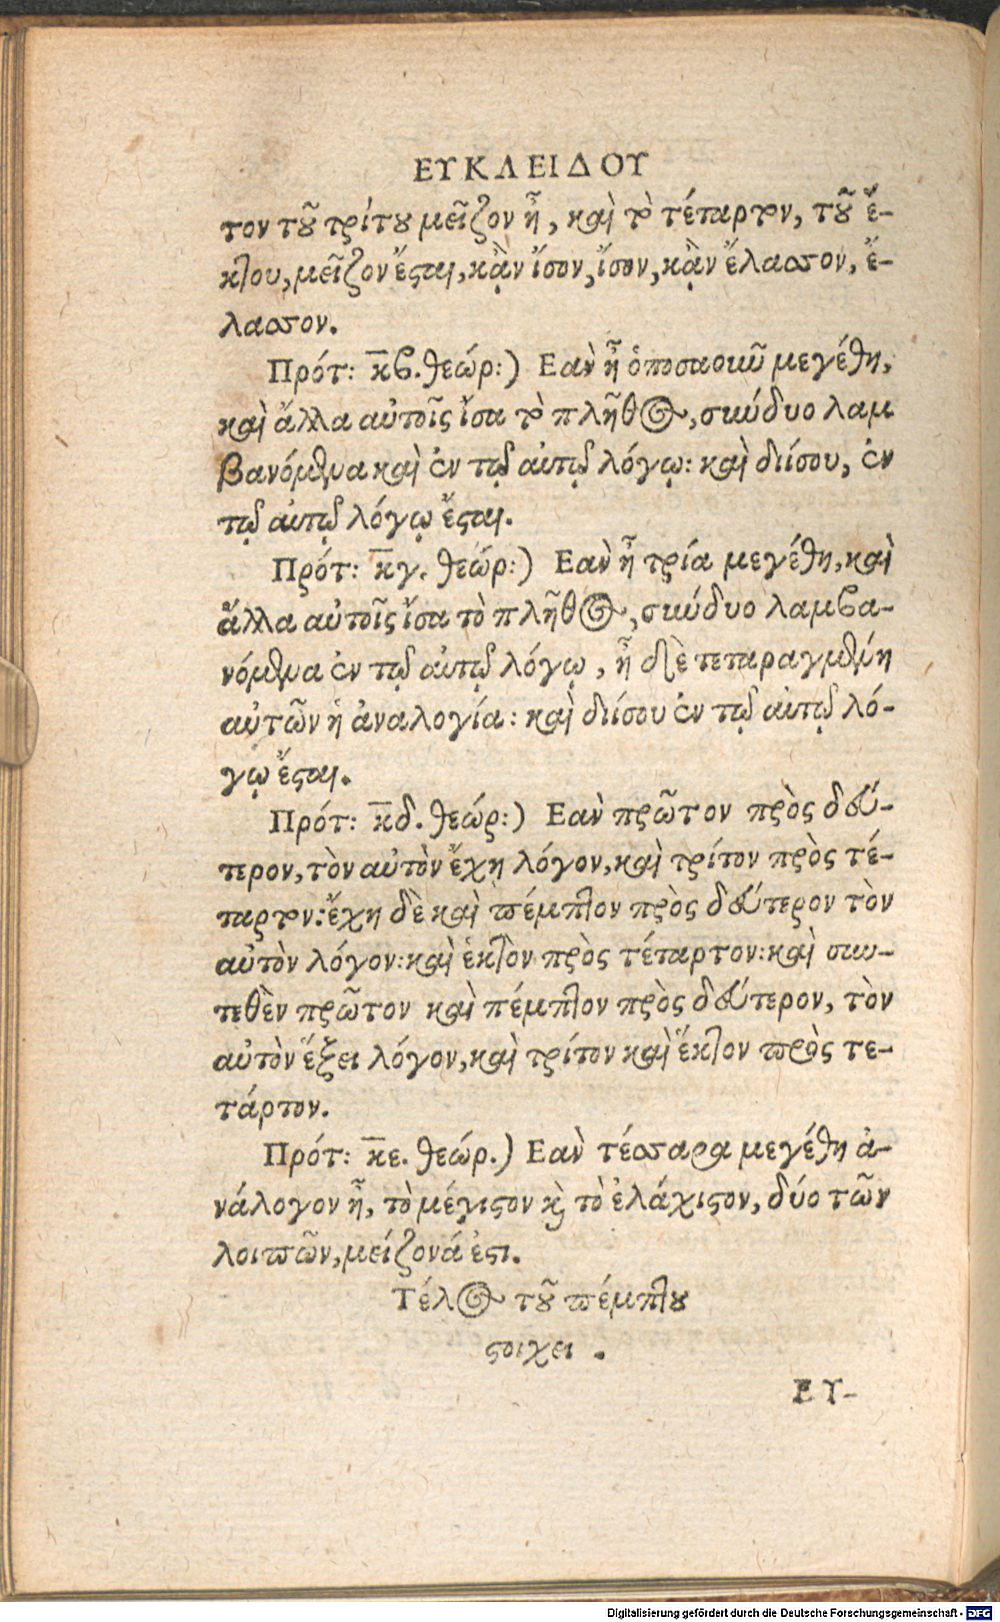 ΕΥΚΛΕΙΔΟΥ
τον τοῦ τρίτου μεῖζον ἦ, καὶ τὸ τέταρτον, τοῦ ἕ-
κτου, μεῖζον ἔσται, κᾂν ἴσον, ἴσον, κᾂν ἔλασσον, ἔ-
λασσον.
Πρότ: κβ. θεώρ:) Εαν ἦ ὁποσαοιοῦν μεγέθη,
καὶ ἄλλα αὐτοῖς ἴσα τὸ πλῆθος, σύνδυο λαμ
βανόμενα καὶ ἐν τῷ αὐτῷ λόγῳ: καὶ διίσου, ἐν
τῷ αὐτῷ λόγῳ ἔσται.
Πρότ: κγ. θεώρ:) Εὰν ἦ τρία μεγέθη, καὶ
ἄλλα αὐτοῖς ἴσα τὸ πλῆθος, σύνδυο λαμβα-
νόμενα ἐν τῷ αὐτῷ λόγῳ, ἦ δὲ τεταραγμένη
αὐτῶν ἡ ἀναλογία: καὶ διίσου ἐν τῷ αὐτῷ λό-
γῳ ἔσται.
Πρότ: κδ. θεώρ:) Εὰν πρῶτον πρὸς δεύ-
τερον, τὸν αὐτὸν ἔχη λόγον, καὶ τρίτον πρὸς τέ-
ταρτον: ἔχη δὲ καὶ πέμπτον πρὸς δεύτερον τὸν
αὐτὸν λόγον: καὶ ἑκτὸν πρὸς τέταρτον: καὶ συν-
τεθὲν πρῶτον καὶ πέμπτον πρὸς δεύτερον, τὸν
αὐτὸν ἕξει λόγον, καὶ τρίτον καὶ ἕκτον πρὸς τε-
τάρτον.
Πρότ: κε. θεώρ.) Εὰν τέσσαρα μεγέθη ἀ-
νάλογον ἦ, τὸ μέγιστον καὶ τὸ ἐλάχιστον, δύο τῶν
λοιπῶν, μείζονά ἐστι.
Τέλος τοῦ πέμπτου
στοιχει .
ΕΥ-
Digitalisierung gefördert durch die Deutsche Forschungsgemeinschaft - DFG